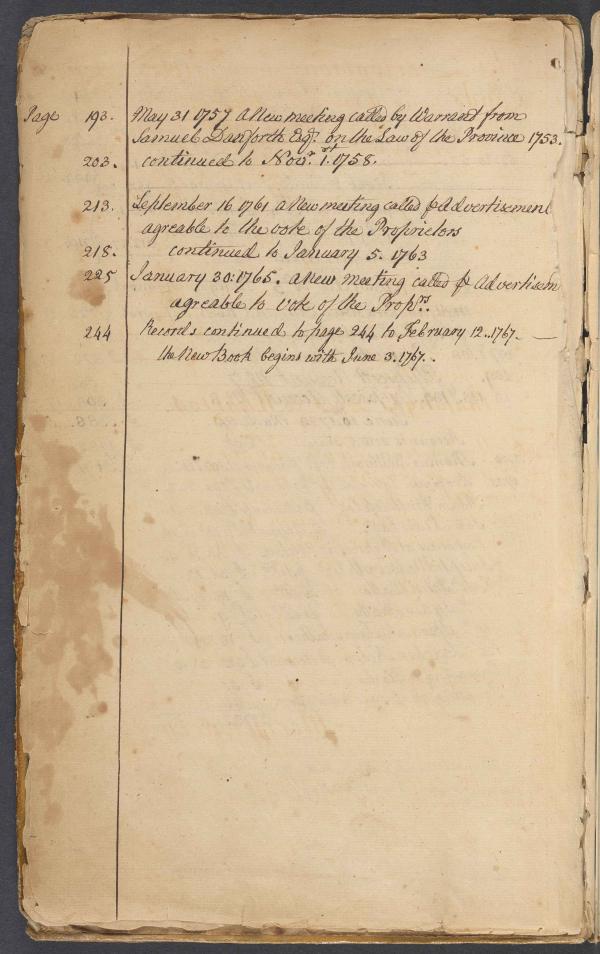 Page 193. May 31 1757 a New meeting called by Warrant from
Samuel Danforth Esqr. on the Law of the Province 1753.
203. continued to Novr. 1st. 1758.
213. September 16 1761 a New meeting called ⅌ Advertisement
agreable to the vote of the Proprietors
218. continued to January 5. 1763
225 January 30: 1765. a new meeting called ⅌ Advertisem
agreable to vote of the Proprs.
244 Records continued to page 244 to February 12.. 1767. —
the New Book begins with June 3. 1767..